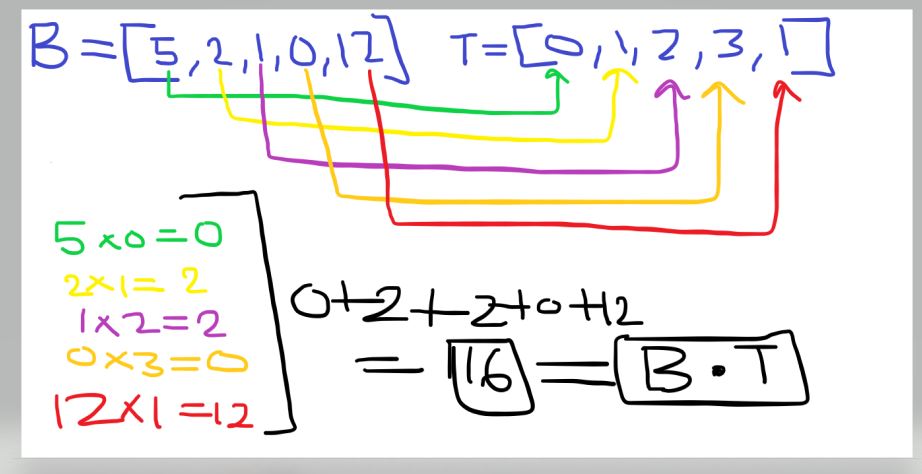 B = [5, 2, 1, 0, 12] T = [0, 1, 2, 3, 1]
5 × 0 = 0
2 × 1 = 2
1 × 2 = 2
0 × 3 = 0
12 × 1 = 12
0 + 2 + 2 + 0 + 12
= 16 = B · T